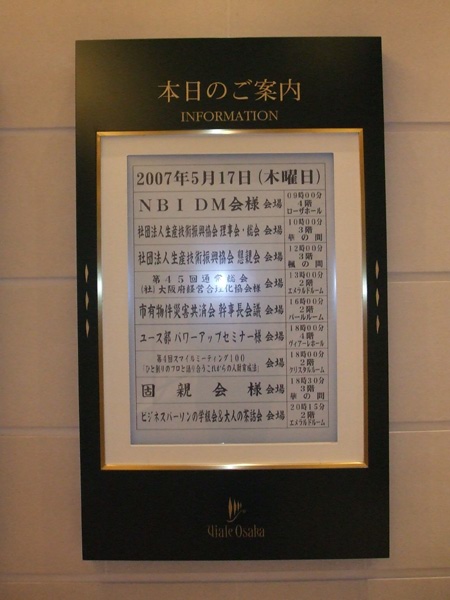 本日のご案内
INFORMATION
2007年5月17日(木曜日)
NBI DM会様 会場 09時00分 4階 ローザホール
社団法人生産技術振興協会 理事会・総会 会場 10時00分 3階 華の間
社団法人生産技術振興協会 懇親会 会場 12時00分 3階 楓の間
第45回通常総会
(社)大阪府経営合理化協会様 会場 13時00分 2階 エメラルドルーム
市有物件災害共済会 幹事長会議 会場 16時00分 2階 パールルーム
ユース部 パワーアップセミナー様 会場 18時00分 4階 ヴィアーレホール
第4回スマイルミーティング100
「ひと創りのプロと語り合うこれからの人財育成法」 会場 18時00分 2階 クリスタルルーム
固親会様 会場 18時30分 3階 華の間
ビジネスパーソンの学級会&大人の茶話会 会場 20時15分 2階 エメラルドルーム
Viale Osaka